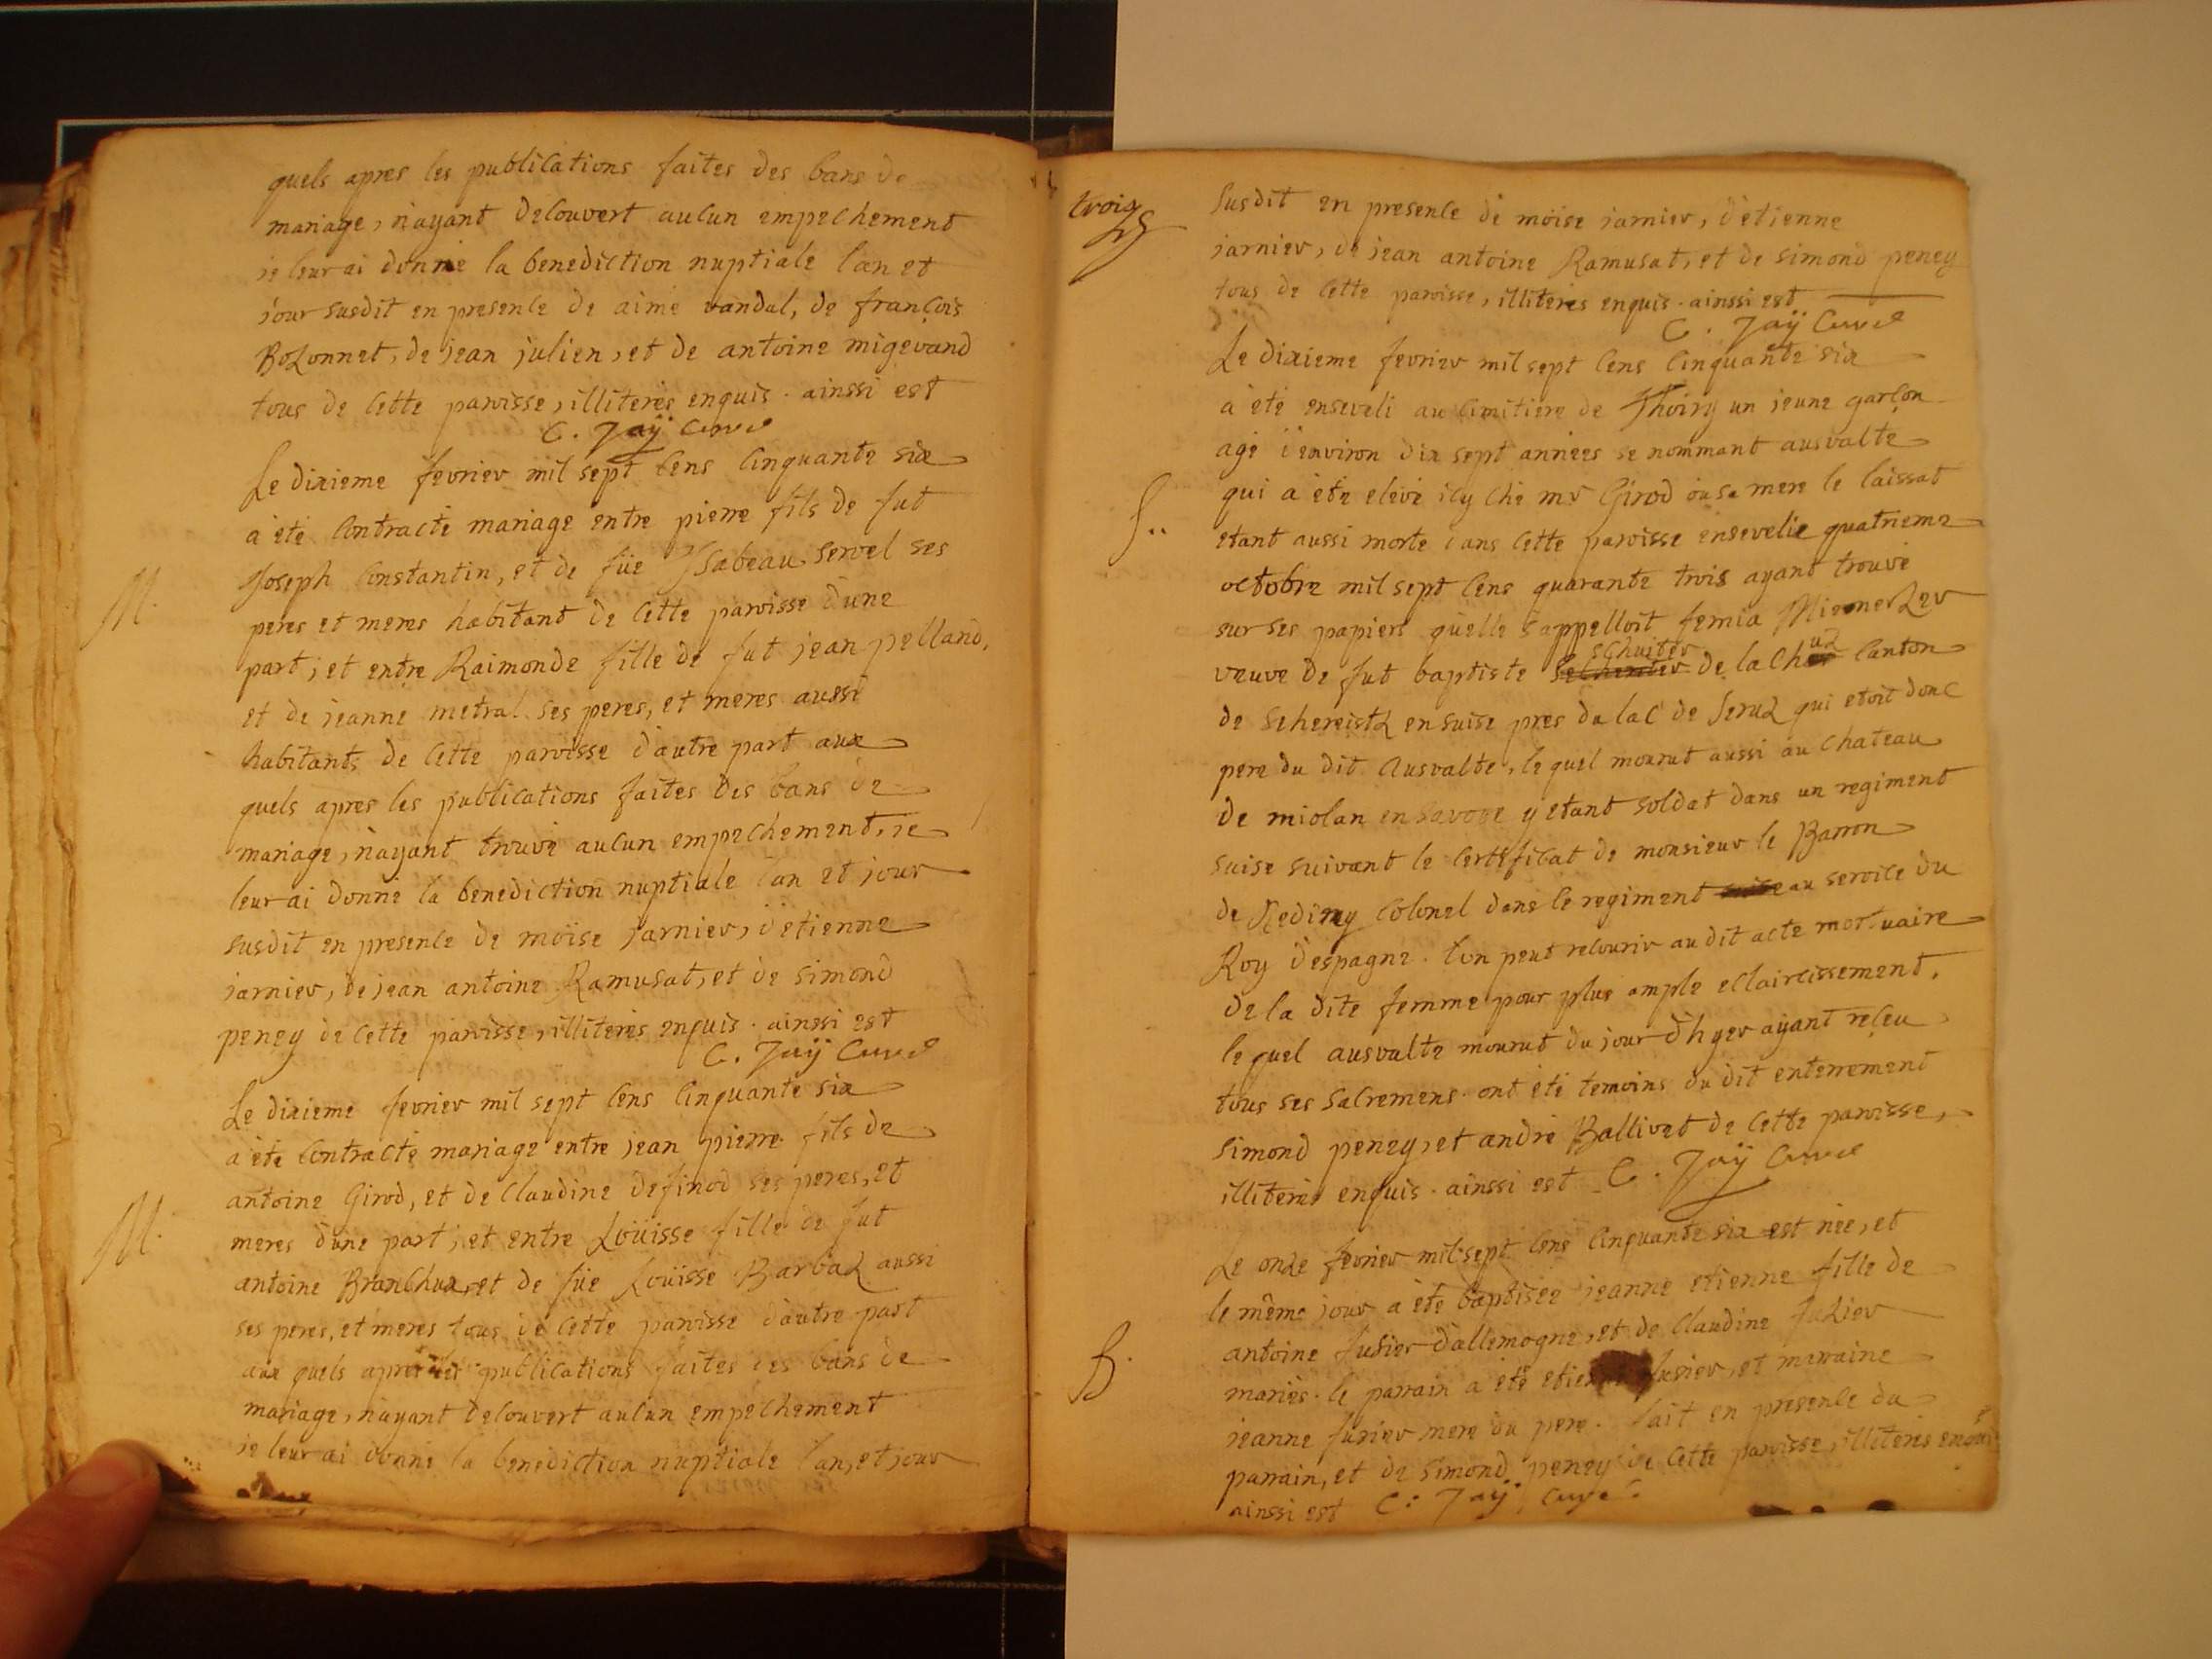 quels apres les publications faites des bans de
mariage, n'ayant decouvert aucun empechement
je leur ai donné la benediction nuptiale l'an et
jour susdit en presence de aimé vandal, de françois
Bozonnet, de jean julien, et de antoine migevand
tous de cette paroisse, illiterés enquis. ainssi est
C. Jaÿ Curé
Le dixieme fevrier mil sept cens cinquante six
a été contracté mariage entre pierre fils de fut
M.
Joseph Constantin, et de füe Isabeau servel ses
peres et meres habitant de cette paroisse d'une
part; et entre Raimonde fille de fut jean pelland,
et de jeanne metral ses peres, et meres aussi
habitants de cette paroisse d'autre part aux
quels apres les publications faites des bans de
mariage, n'ayant trouvé aucun empechement, je
leur ai donné la benediction nuptiale l'an et jour
susdit en presence de moïse jarnier, d'etienne
jarnier, de jean antoine Ramusat, et de simond
peney de cette paroisse, illiterés enquis. ainssi est
C. Jaÿ Curé
Le dixieme fevrier mil sept cens cinquante six
a été contracté mariage entre jean pierre fils de
antoine Girod, et de Claudine definod ses peres, et
M.
meres d'une part; et entre Loüisse fille de fut
antoine Branchux, et de füe Loüisse Barbaz aussi
ses peres, et meres tous de cette paroisse d'autre part
aux quels apres les publications faites des bans de
mariage, n'ayant decouvert aucun empechement
je leur ai donné la benediction nuptiale l'an, et jour
trois
susdit en presence de moïse jarnier, d'etienne
jarnier, de jean antoine Ramusat, et de simond peney
tous de cette paroisse, illiterés enquis. ainssi est
C. Jaÿ Curé
Le dixieme fevrier mil sept cens cinquante six
a été enseveli au cimitiere de Thoiry un jeune garçon
agé d'environ dix sept années se nommant ausvalte
S..
qui a été elevé icy ché mr Girod ou sa mere le laissat
etant aussi morte dans cette paroisse ensevelie quatrieme
octobre mil sept cens quarante trois ayant trouvé
sur ses papiers qu'elle s'appelloit femia
schuiter
veuve de fut baptiste de la Canton
de schereistz en suise pres du lac de seruz qui etoit donc
pere du dit Ausvalte, le quel mourut aussi au chateau
de miolan en savoye y etant soldat dans un regiment
suise suivant le certificat de monsieur le Barron
de Rediny Colonel dans le regiment au service du
Roy d'espagne. l'on peut recourir au dit acte mortuaire
de la dite femme pour plus ample ecclaircissement.
le quel ausvalte mourut du jour d'hyer ayant reçeu
tous ses sacremens. ont été temoins du dit enterrement
simond peney, et andré Ballivet de cette paroisse,
illiterés enquis. ainssi est C. Jaÿ Curé
Le onze fevrier mil sept cens cinquante six est née, et
le même jour a été baptisée jeanne etienne fille de
B.
antoine fusier d'allemogne, et de Claudine fuzier
mariés. le parrain a été fusier, et marraine
jeanne fusier mere du pere. fait en presence du
parrain, et de simond peney de cette paroisse, illiterés enquis
ainssi est C. Jaÿ Curé.